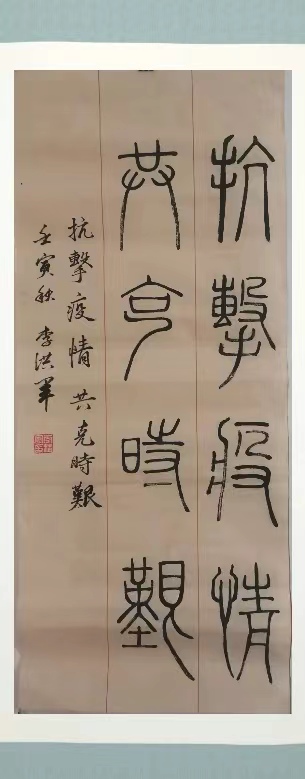 抗擊疫情
共克時艱
抗擊疫情共克時艱
壬寅秋 李洪軍